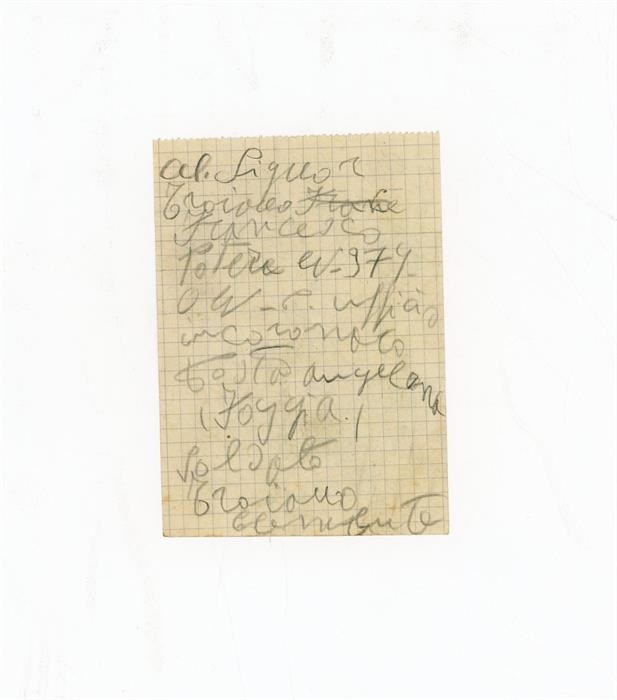 al. Signor
Troiano
Francesco
Potere N-979
O N-C. uffiio
incoronato
Posta angelona
(Foggia)
Soldato
Troiano
Clemente